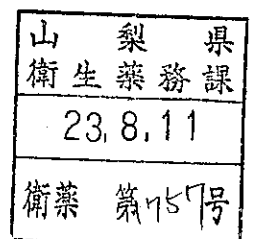 山梨県
衛生薬務課
23.8.11
衛薬 第757号